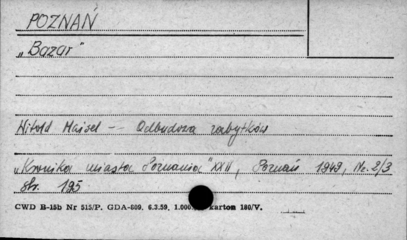 POZNAŃ
„Bazar"
Witold Maisel -- Odbudowa zabytków
„Kronika miasta Poznania" XXII, Poznań 1949, Nr. 2/3
str. 195
CWD B-15b Nr 515/P. GDA-809, 6.3.59, 1.000 karton 180/V.